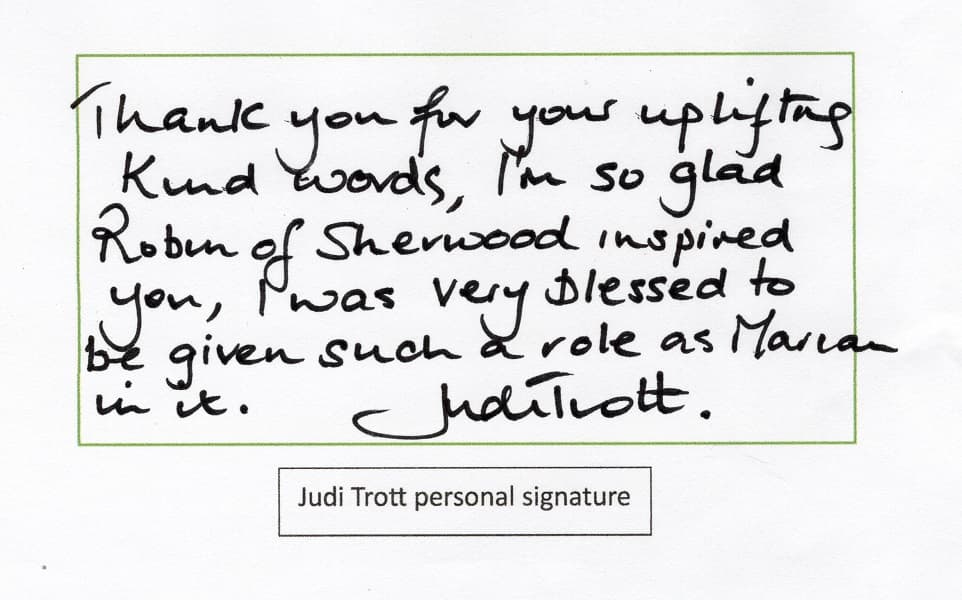 Thank you for your uplifting
Kind words, I'm so glad
Robin of Sherwood inspired
you, I was very blessed to
be given such a role as Marian
in it. Judi Trott.
Judi Trott personal signature